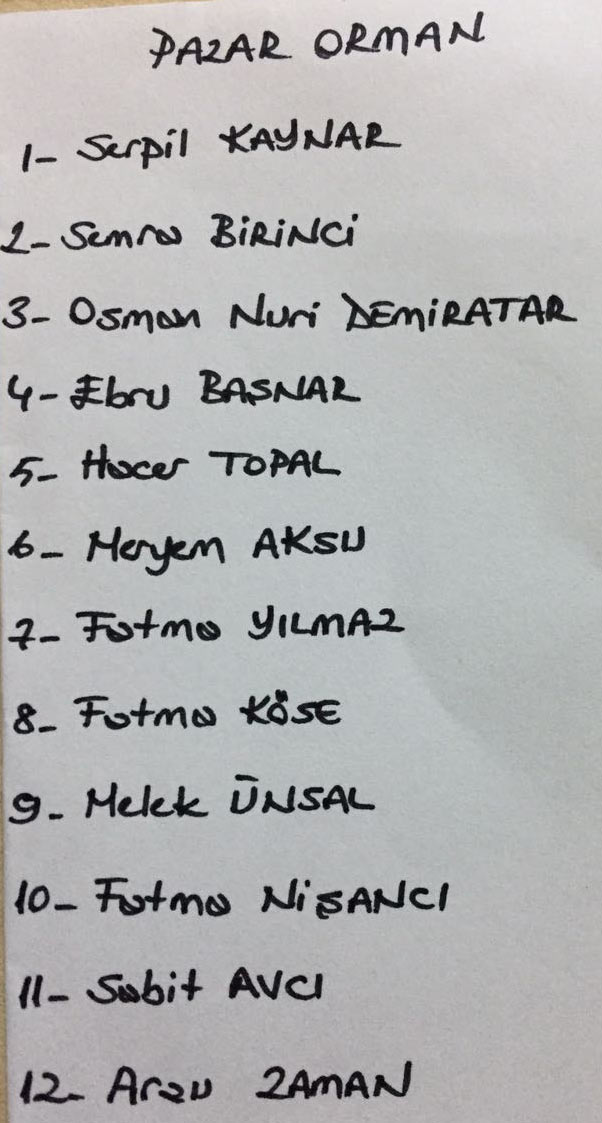 PAZAR ORMAN
1- Serpil KAYNAR
2- Semra BİRİNCİ
3- Osman Nuri DEMİRATAR
4- Ebru BAŞNAR
5- Hacer TOPAL
6- Meryem AKSU
7- Fatma YILMAZ
8- Fatma KÖSE
9- Melek ÜNSAL
10- Fatma NİŞANCI
11- Sabit AVCI
12- Arzu ZAMAN